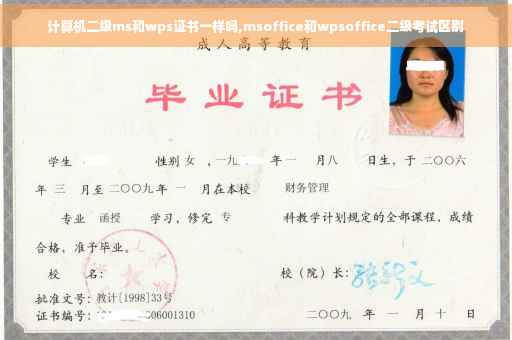 计算机二级ms和wps证书一样吗,msoffice和wpsoffice二级考试区别
成人高等教育
毕业证书
学生 性别 女 ，一九 年 一 月八 日生，于二〇〇六
年 三 月至二〇〇九年 一 月在本校 财务管理
专业 函授 学习，修完 专 科教学计划规定的全部课程，成绩
合格，准予毕业。
校 名： 校（院）长：
批准文号：教计[1998]33号
证书编号： 06001310 二〇〇九 年 一 月 十 日